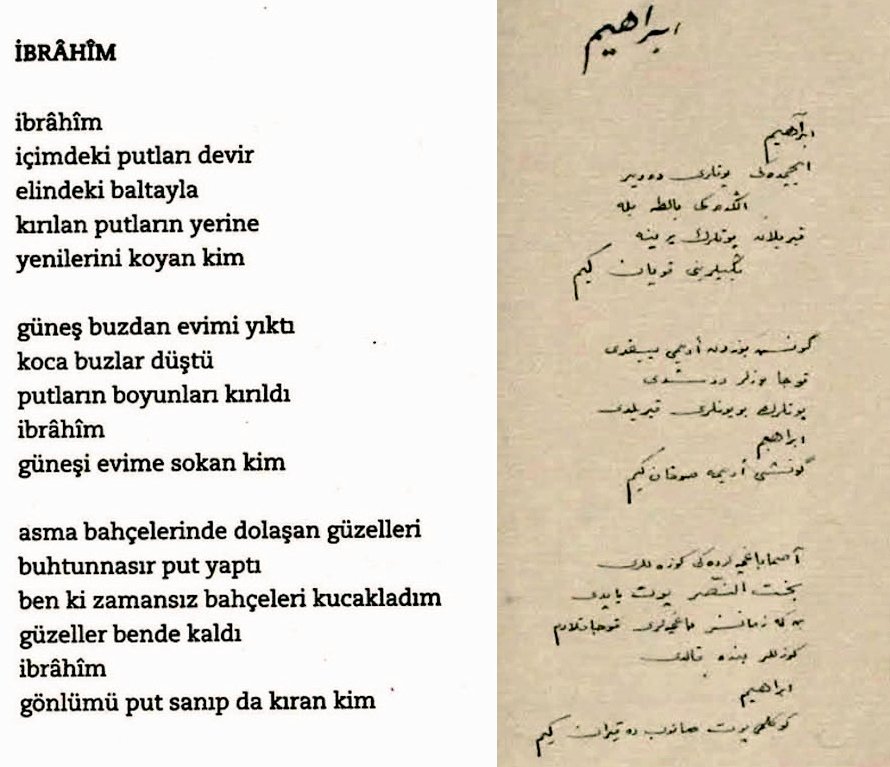 İBRÂHÎM
ibrâhîm
içimdeki putları devir
elindeki baltayla
kırılan putların yerine
yenilerini koyan kim
güneş buzdan evimi yıktı
koca buzlar düştü
putların boyunları kırıldı
ibrâhîm
güneşi evime sokan kim
asma bahçelerinde dolaşan güzelleri
buhtunnasır put yaptı
ben ki zamansız bahçeleri kucakladım
güzeller bende kaldı
ibrâhîm
gönlümü put sanıp da kıran kim
ابراهيم
ابرآهيم
ايچيمده‌كى پوتلرى ده‌وير
الڭده‌كى بالطه يله
قيريلان پوتلرڭ يرينه
يڭيلرينى قويان كيم
گونش بوزدن أويمى ييقدى
قوجا بوزلر دوشدى
پوتلرڭ بويونلرى قيريلدى
ابراهيم
گونشى أويمه صوقان كيم
بخت النصّر پوت ياپدى
گوزللر بنده قالدى
ابراهيم
گوڭلمى پوت صانوب ده قيران كيم